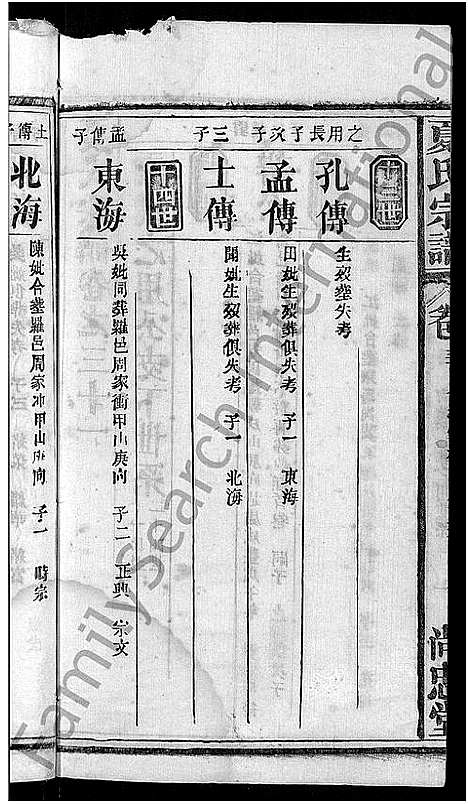 夏氏宗譜 卷
尚忠堂
十三世
之用長子 孔傳 生歿塟失考
次子 孟傳 田妣生歿葬俱失考 子一 東海
三子 士傳 開妣生歿葬俱失考 子一 北海
十四世
孟傳子 東海 吳妣同葬羅邑周家衝甲山庚向 子二 正興 宗文
士傳子 北海 陳妣合塟羅邑周家冲甲山庚向 子一 時宗
FamilySearch International